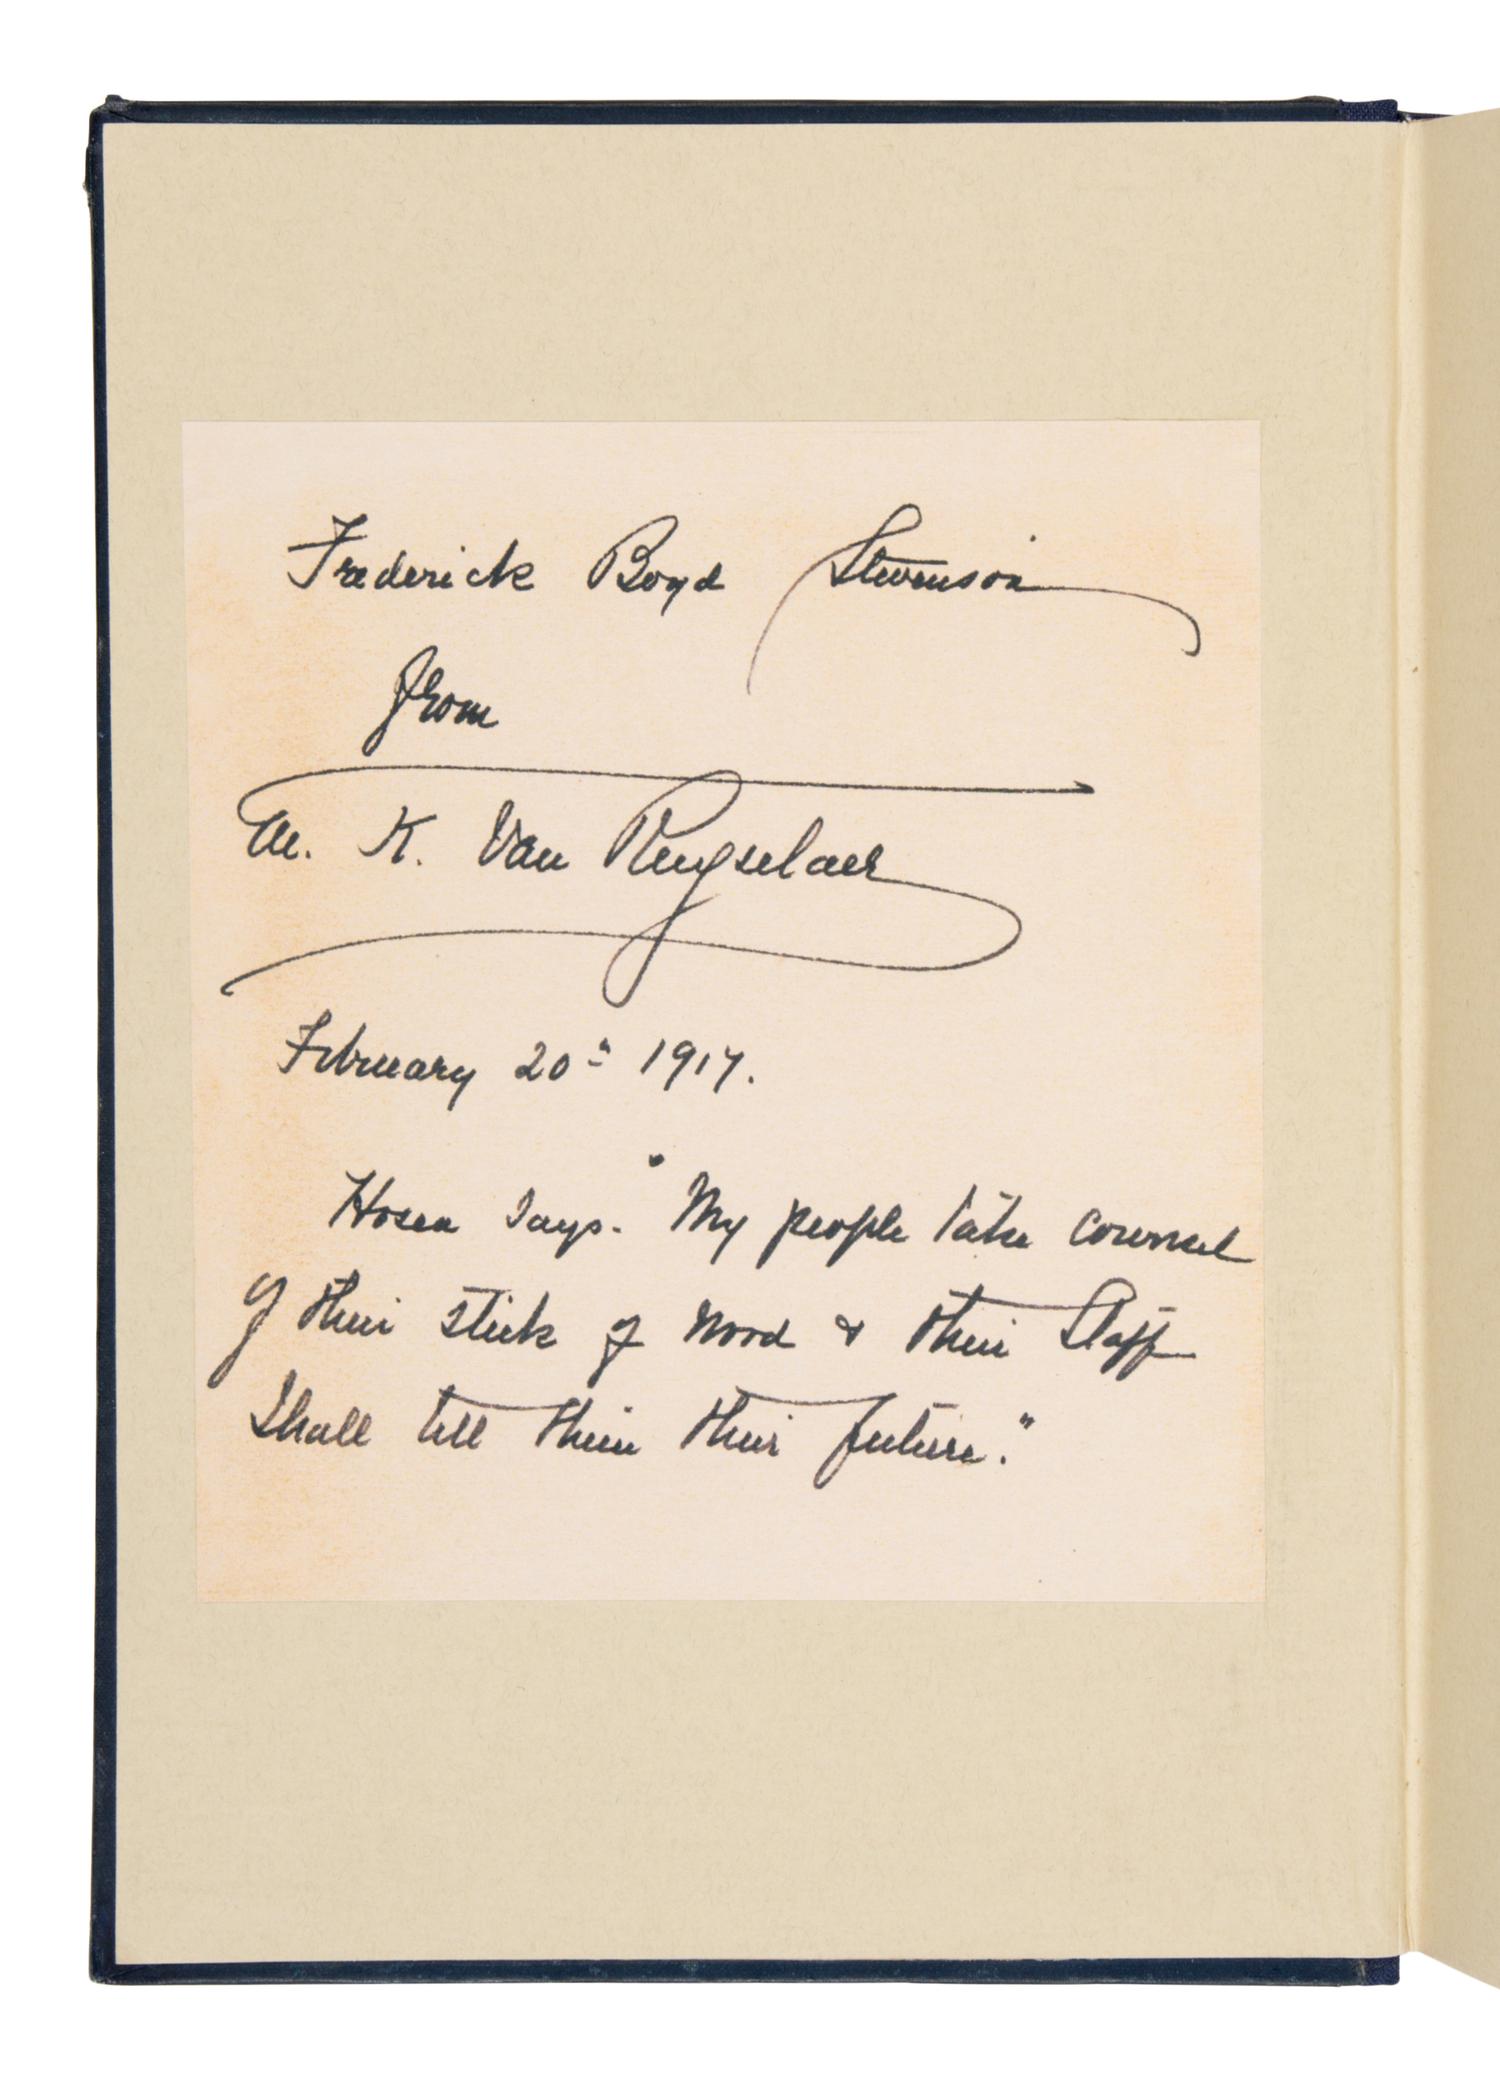 Frederick Boyd Stevenson
from
M. K. Van Rensselaer
February 20" 1917.
Hosea says. "My people take counsel
of their stick of wood & their Staff
Shall tell them their future."